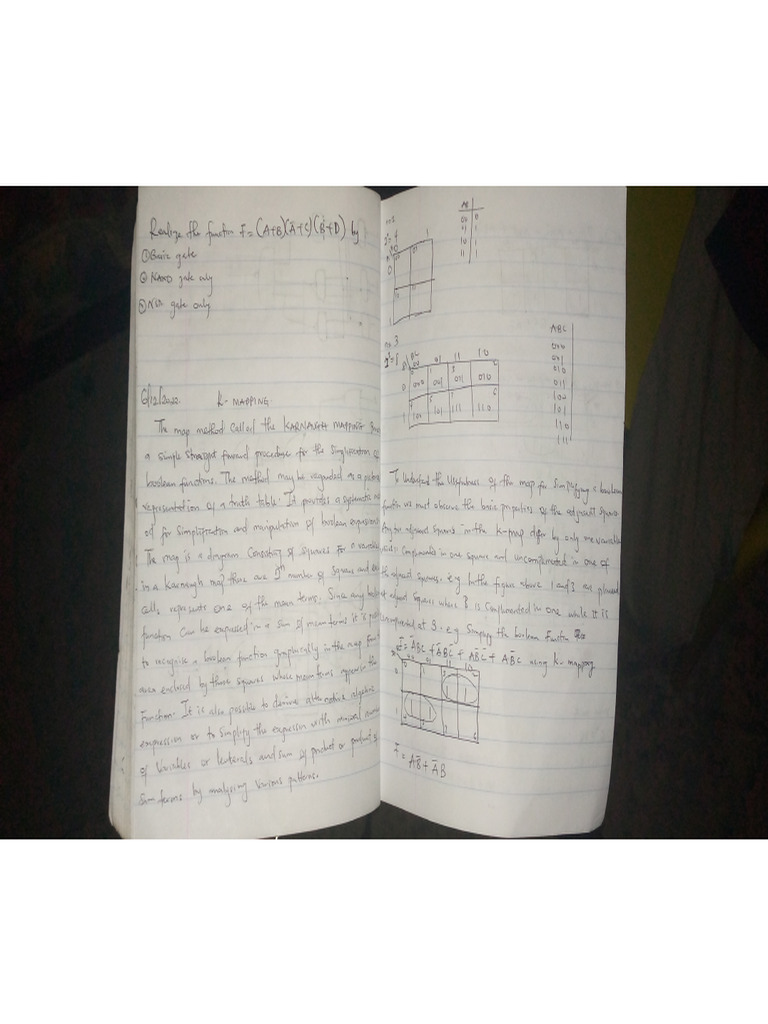 Realize the function F = (A+B)(Ā+C)(B+D) by
① Basic gate
② NAND gate only
③ NOR gate only
6/12/2022. K-MAPPING.
The map method called the KARNAUGH MAPPING
a simple straight forward procedure for the simplification of
boolean functions. The method may be regarded as a
representation of a truth table. It provides a systematic
od for simplification and manipulation of boolean expressions
The map is a diagram consisting of squares for n variable
in a Karnaugh map there are 2ⁿ number of square and
cells represents one of the mean terms. Since any
function can be expressed in a sum of mean terms it is
to recognise a boolean function graphically in the map from
area enclosed by those squares whose mean terms appear in the
function. It is also possible to derive alternative algebraic
expression or to simplify the expression with minimal
of variables or literals and sum of product or product of
sum terms by analysing various patterns.
n=2
2²=4
AB
00 0
01 1
10 1
11 1
0 1
0
1
n=3
2³=8
BC
00 01 11 10
0 000 001 011 010
1 101 101 111 110
ABC
000
001
010
011
100
101
110
111
To understand the usefulness of the map for simplifying a boolean
function we must observe the basic properties of the adjacent squares
Any two adjacent squares in the K-map differ by only one variable
which is complemented in one square and uncomplemented in one of
the adjacent squares. e.g. In the figure above 1 and 3 are placed
at adjacent squares where B is complimented in one while it is
at 3. e.g Simplify the boolean Function
F = ĀBC + ĀBC̄ + AB̄C̄ + AB̄C using K-mapping
00 01 11 10
0 1 1
1 1 1
F = AB̄ + ĀB